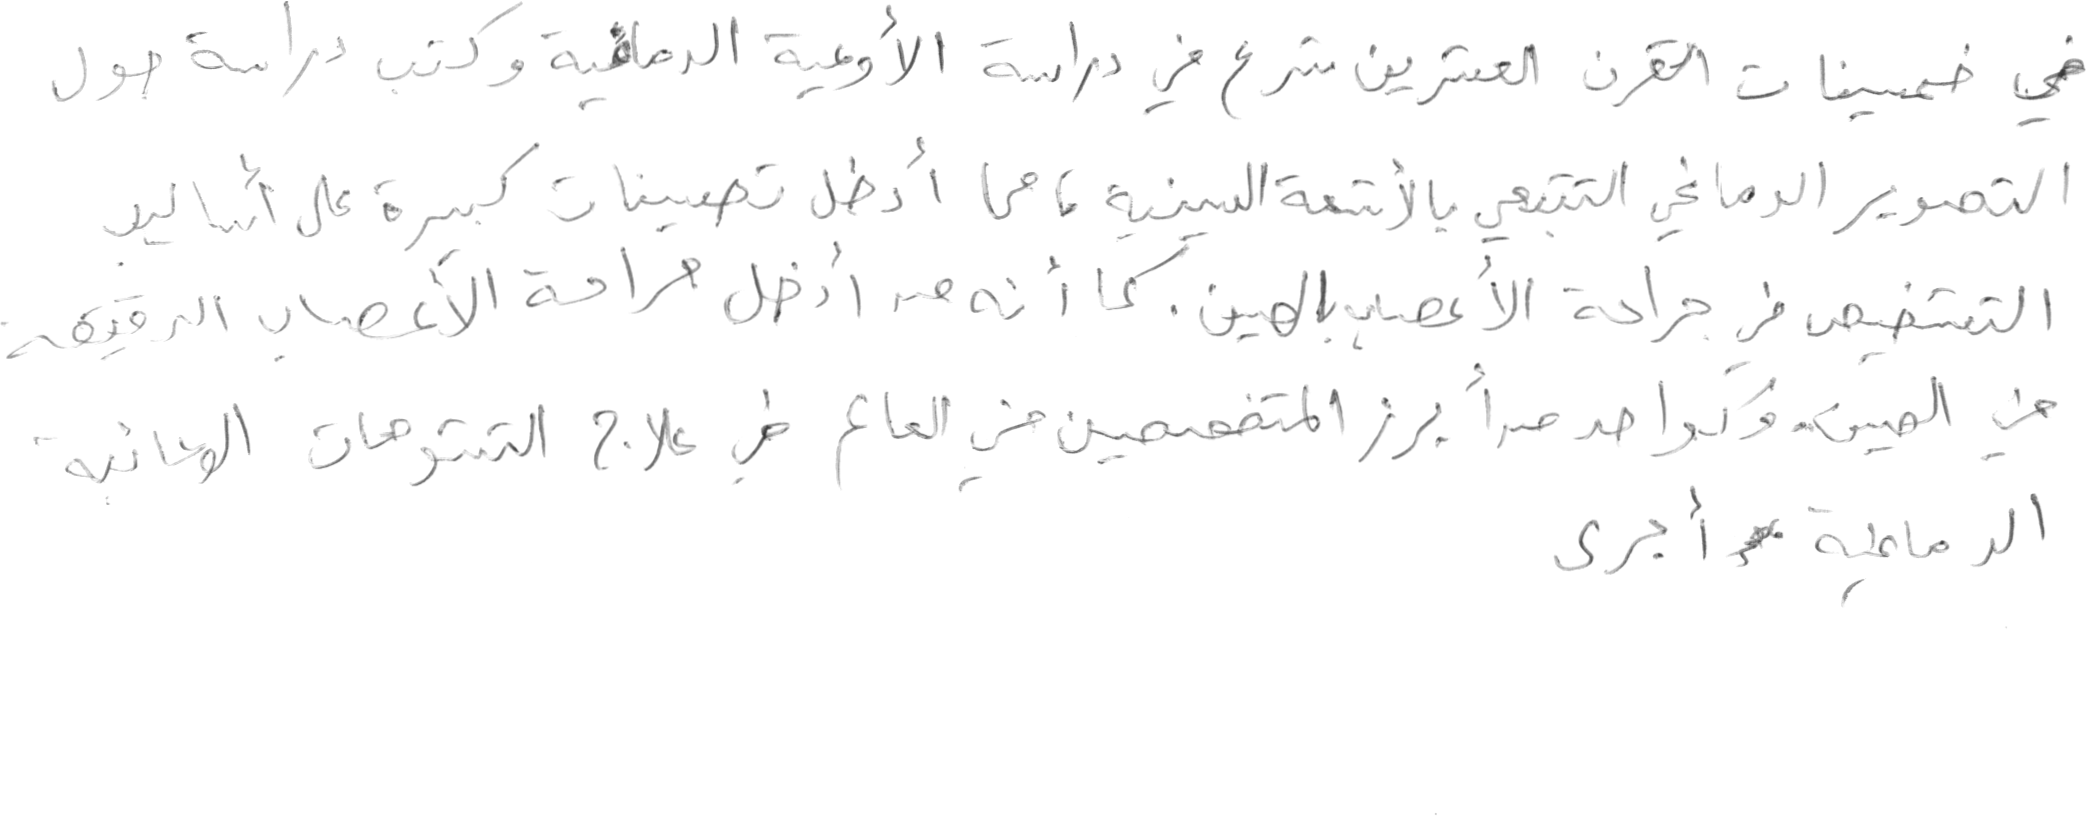 في خمسينات القرن العشرين شرع في دراسة الأوعية الدماغية وكتب دراسة حول
التصوير الدماغي التتبعي بالأشعة السينية، مما أدخل تحسينات كبيرة على أساليب
التشخيص في جراحة الأعصاب بالصين. كما أنه من أدخل جراحة الأعصاب الدقيقة
من الصين. وكواحد من أبرز المتخصصين في العالم في علاج التشوهات الوعائية
الدماغية أجرى